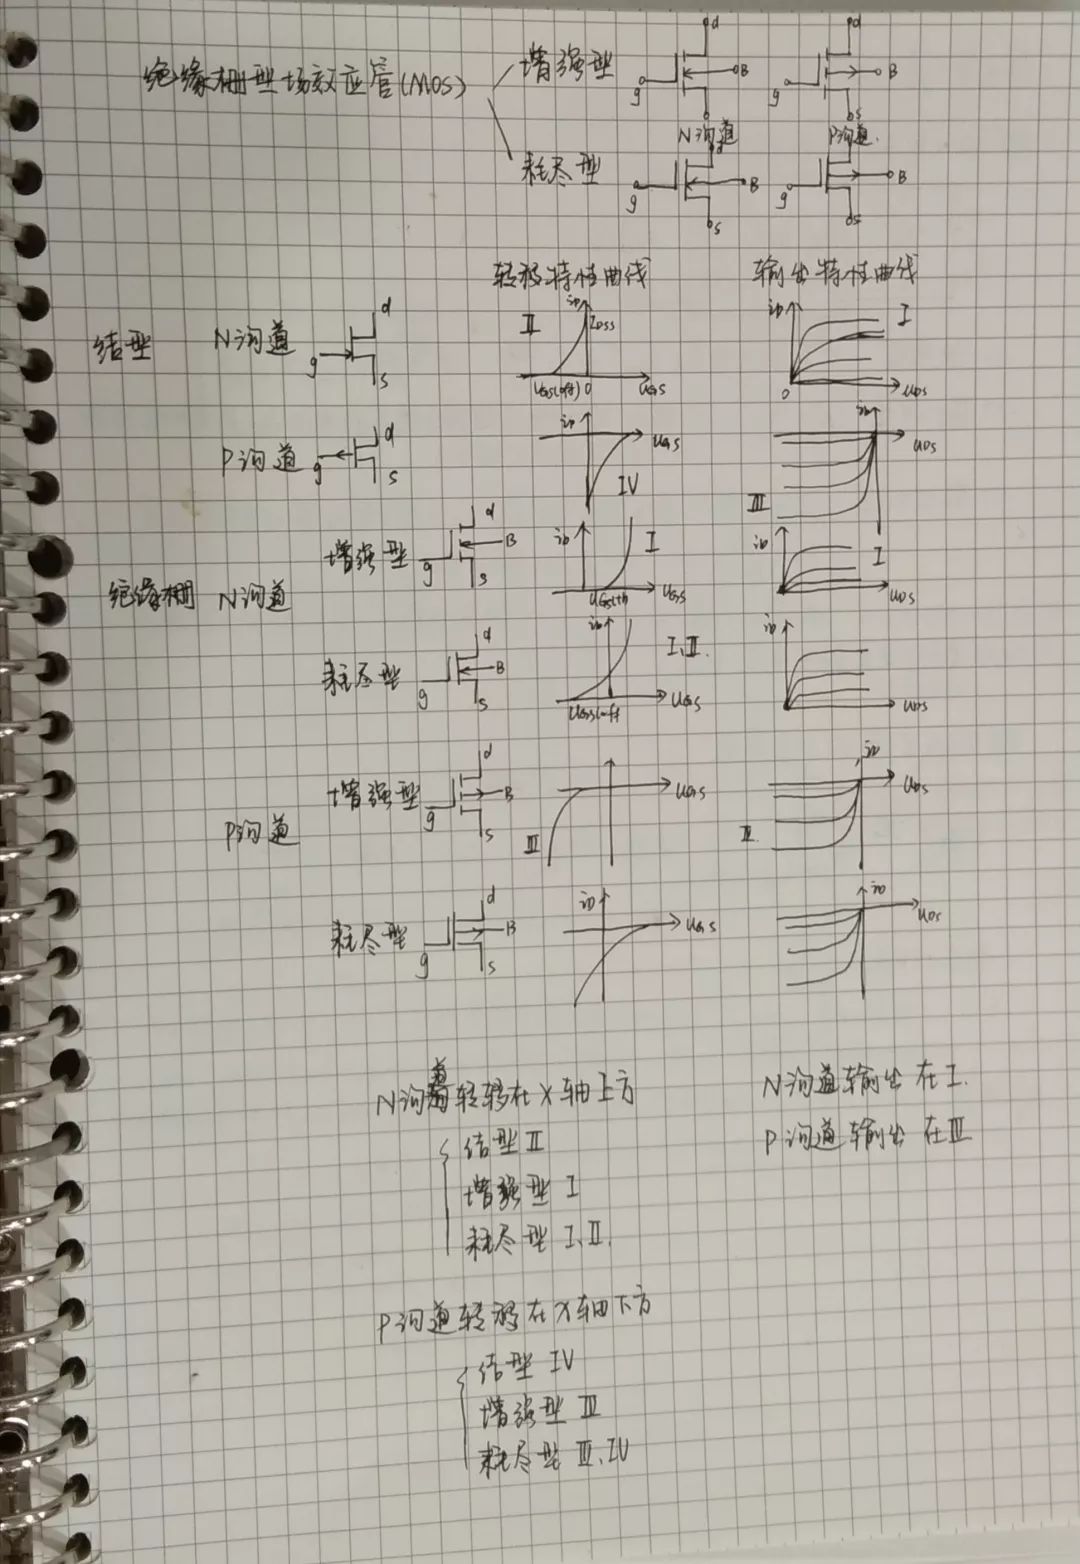 绝缘栅型场效应管(MOS)
增强型
g d B s
N沟道
g d B s
P沟道.
耗尽型
g B s
g B s
转移特性曲线
输出特性曲线
结型
N沟道
g d s
II iD IDSS UGS(off) 0 UGS
iD I 0 UDS
P沟道
g d s
iD UGS IV
iD UDS III
绝缘栅 N沟道
增强型
g d B s
iD I UGS(th UGS
iD I UDS
耗尽型
g d B s
iD I、II. UGS(off UGS
iD UDS
P沟道
增强型
g d B s
UGS III
iD UDS III
耗尽型
g d B s
iD UGS
iD UDS
N沟道转移在X轴上方
结型 II
增强型 I
耗尽型 I、II.
N沟道输出在I.
P沟道输出在III
P沟道转移在X轴下方
结型 IV
增强型 III
耗尽型 III、IV